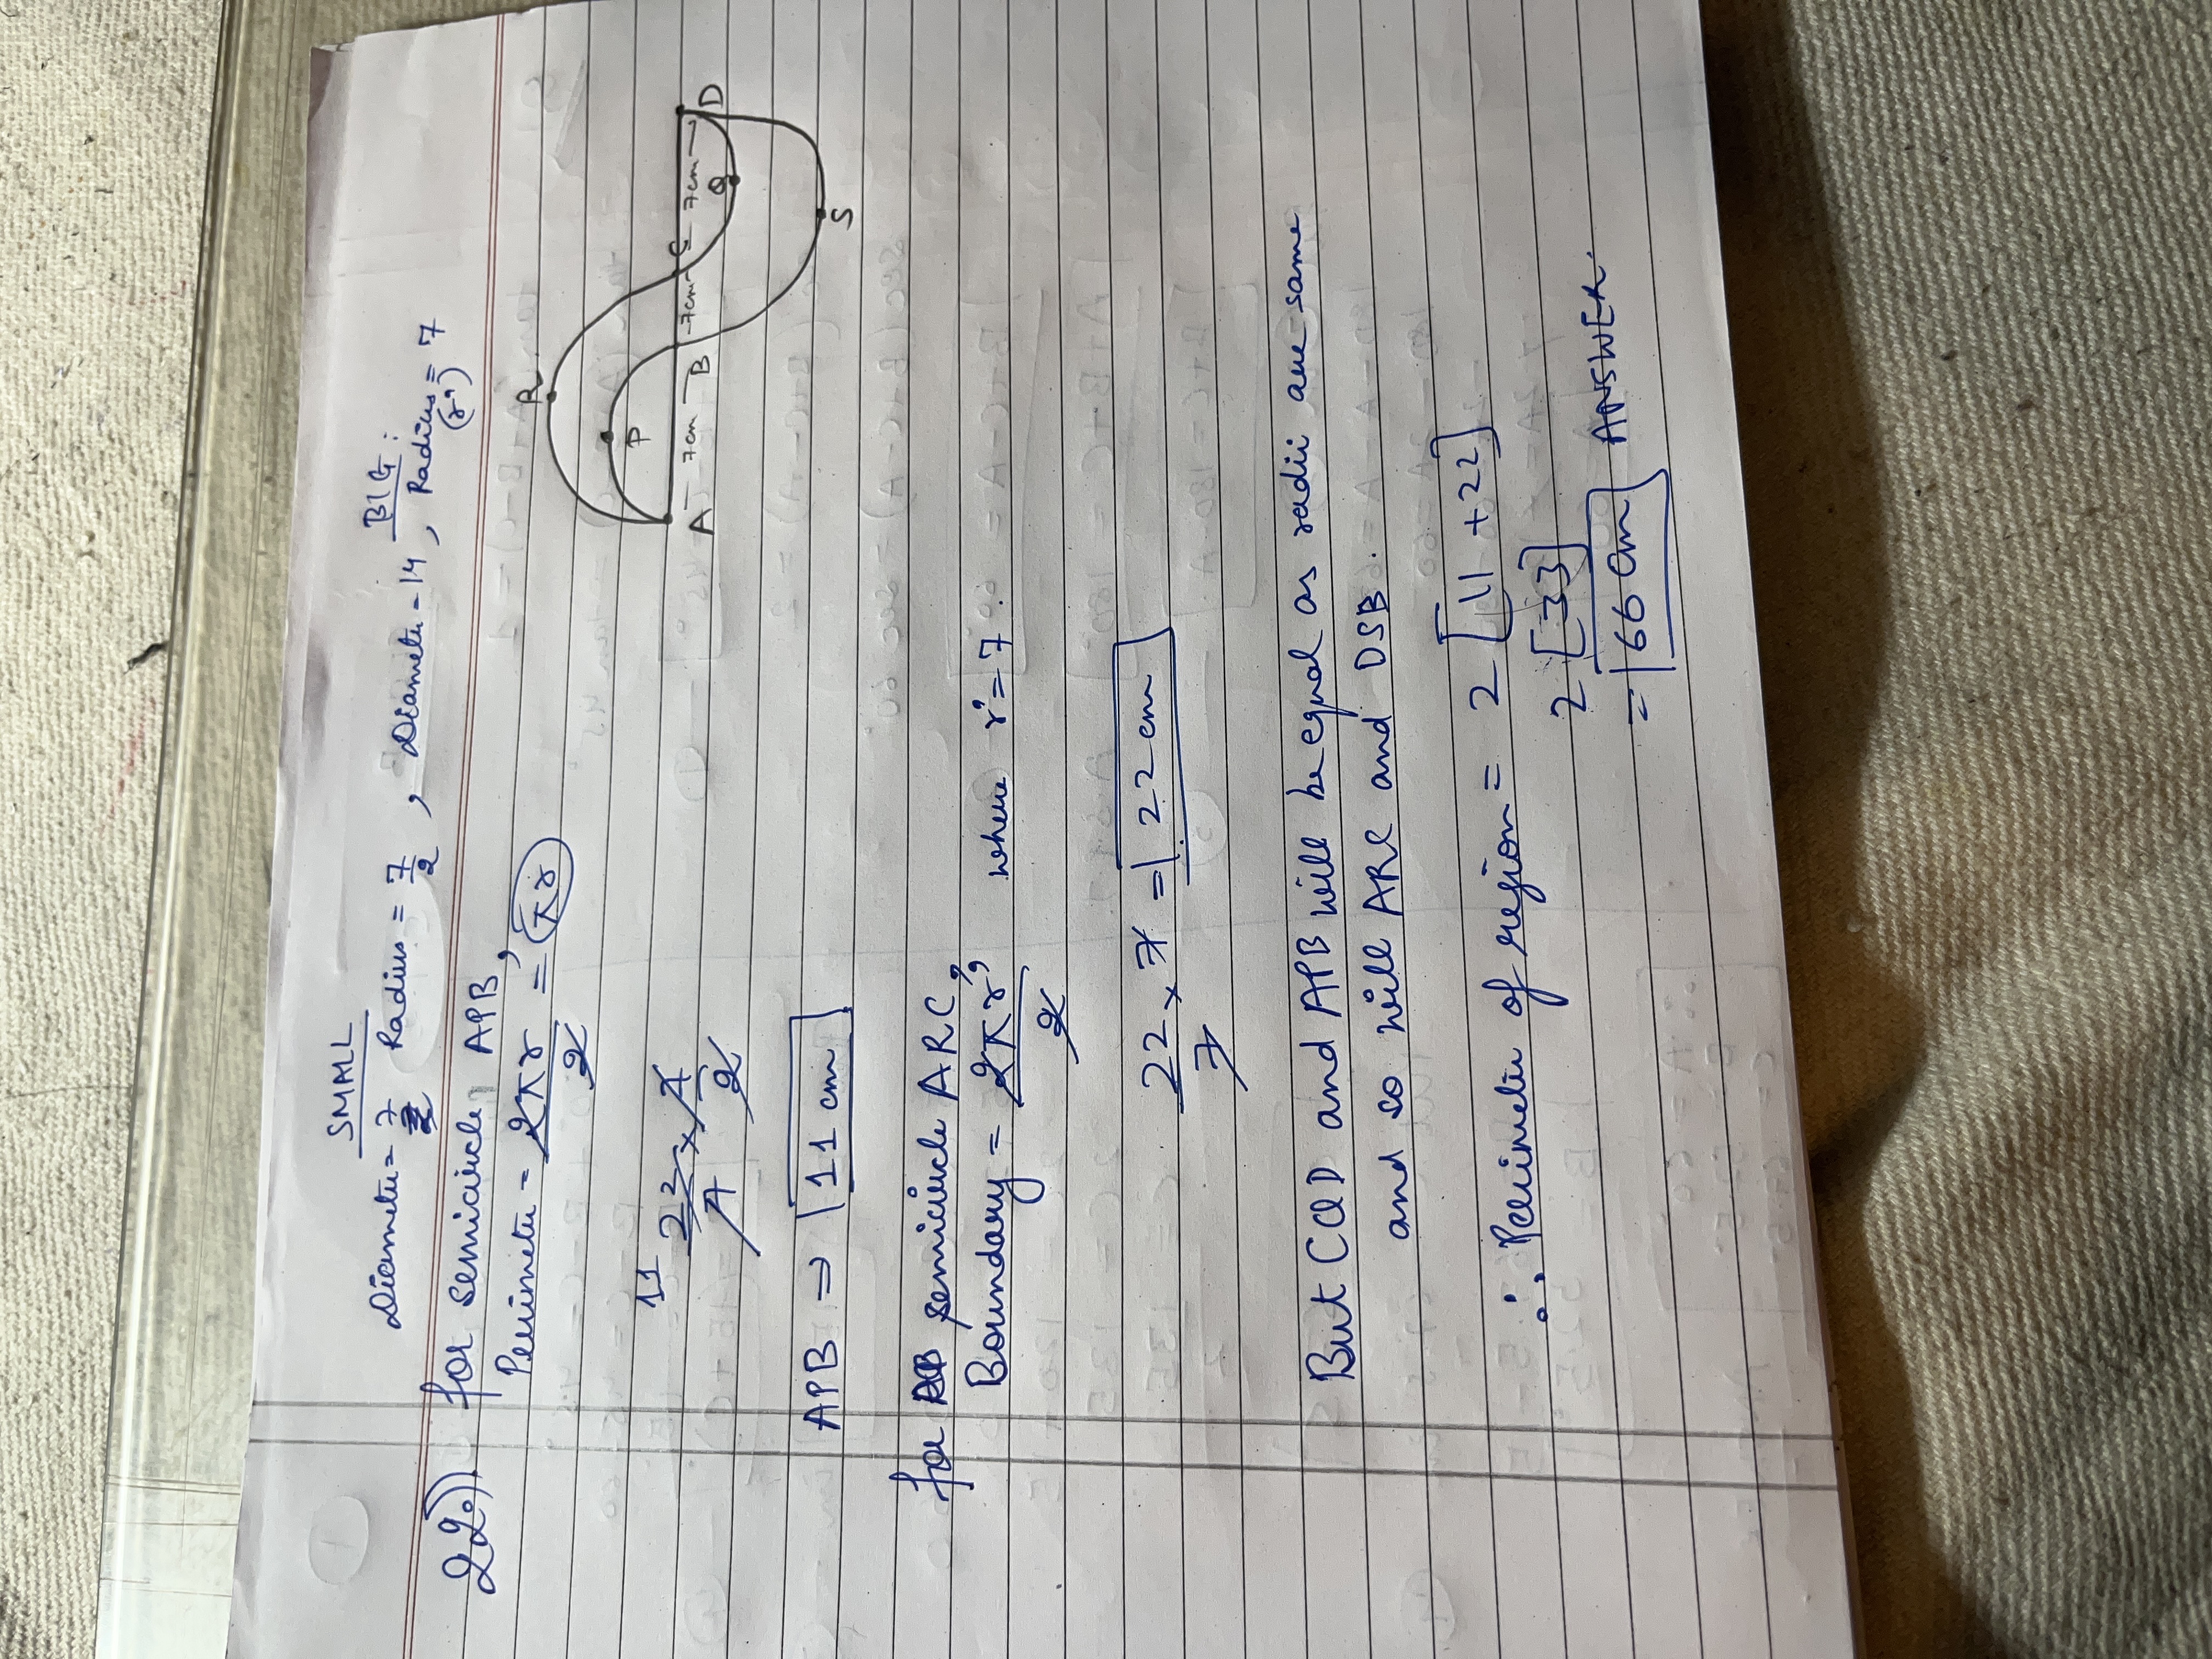 SMALL
Diameter = 7 Radius = 7/2 , Diameter - 14 , Radius = 7
BIG:
(r')
22.) for semicircle APB,
Perimeter - 2πr/2 = πr
11 22/7 x 7/2
APB ⇒ 11 cm
R
P
A 7cm B 7cm C 7cm D
Q
S
for semicircle ARC,
Boundary = 2πr'/2 , where r' = 7
22/7 x 7 = 22 cm
But CQD and APB will be equal as radii are same
and so will ARC and DSB.
∴ Perimeter of region = 2 [11 + 22]
2 [33]
= 66 cm ANSWER.